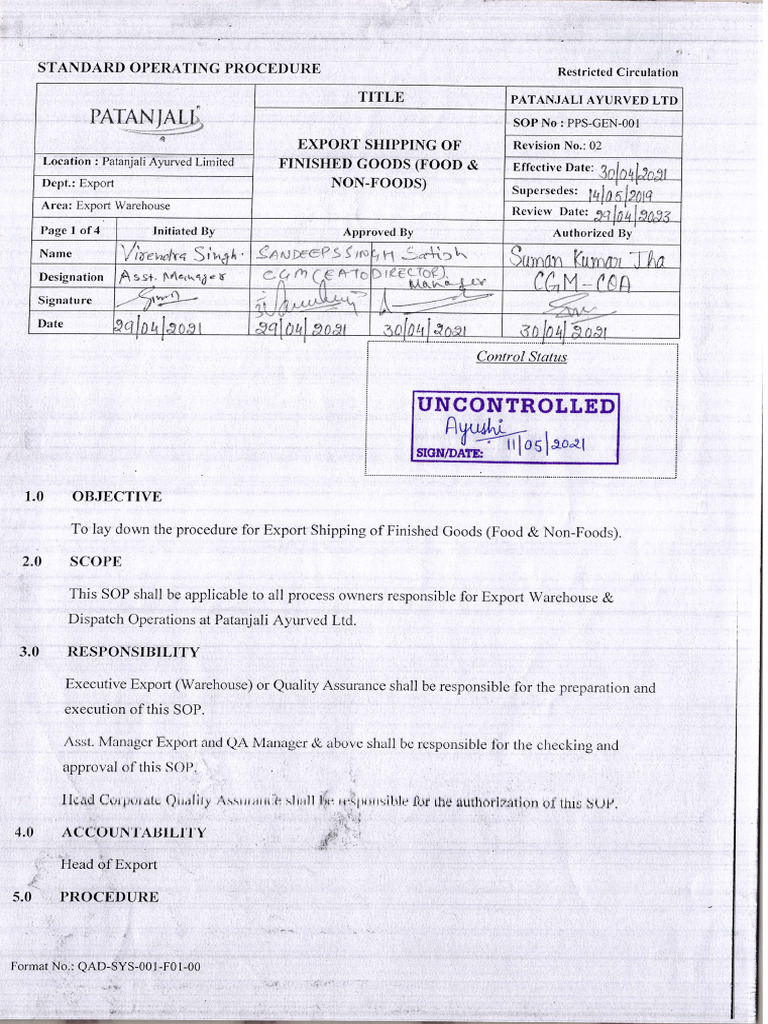 STANDARD OPERATING PROCEDURE
Restricted Circulation
PATANJALI
TITLE
PATANJALI AYURVED LTD
SOP No : PPS-GEN-001
EXPORT SHIPPING OF
FINISHED GOODS (FOOD &
NON-FOODS)
Revision No.: 02
Location : Patanjali Ayurved Limited
Effective Date: 30/04/2021
Dept.: Export
Supersedes: 14/05/2019
Area: Export Warehouse
Review Date: 29/04/2023
Page 1 of 4 Initiated By Approved By Authorized By
Name Virendra Singh. SANDEEPSSINGH Satish Suman Kumar Jha
Designation Asst. Manager CGM (EATODIRECTOR) Manager CGM-CQA
Signature
Date 29/04/2021 29/04/2021 30/04/2021 30/04/2021
Control Status
UNCONTROLLED
Ayushi
SIGN/DATE: 11/05/2021
1.0 OBJECTIVE
To lay down the procedure for Export Shipping of Finished Goods (Food & Non-Foods).
2.0 SCOPE
This SOP shall be applicable to all process owners responsible for Export Warehouse &
Dispatch Operations at Patanjali Ayurved Ltd.
3.0 RESPONSIBILITY
Executive Export (Warehouse) or Quality Assurance shall be responsible for the preparation and
execution of this SOP.
Asst. Manager Export and QA Manager & above shall be responsible for the checking and
approval of this SOP.
Head Corporate Quality Assurance shall be responsible for the authorization of this SOP.
4.0 ACCOUNTABILITY
Head of Export
5.0 PROCEDURE
Format No.: QAD-SYS-001-F01-00